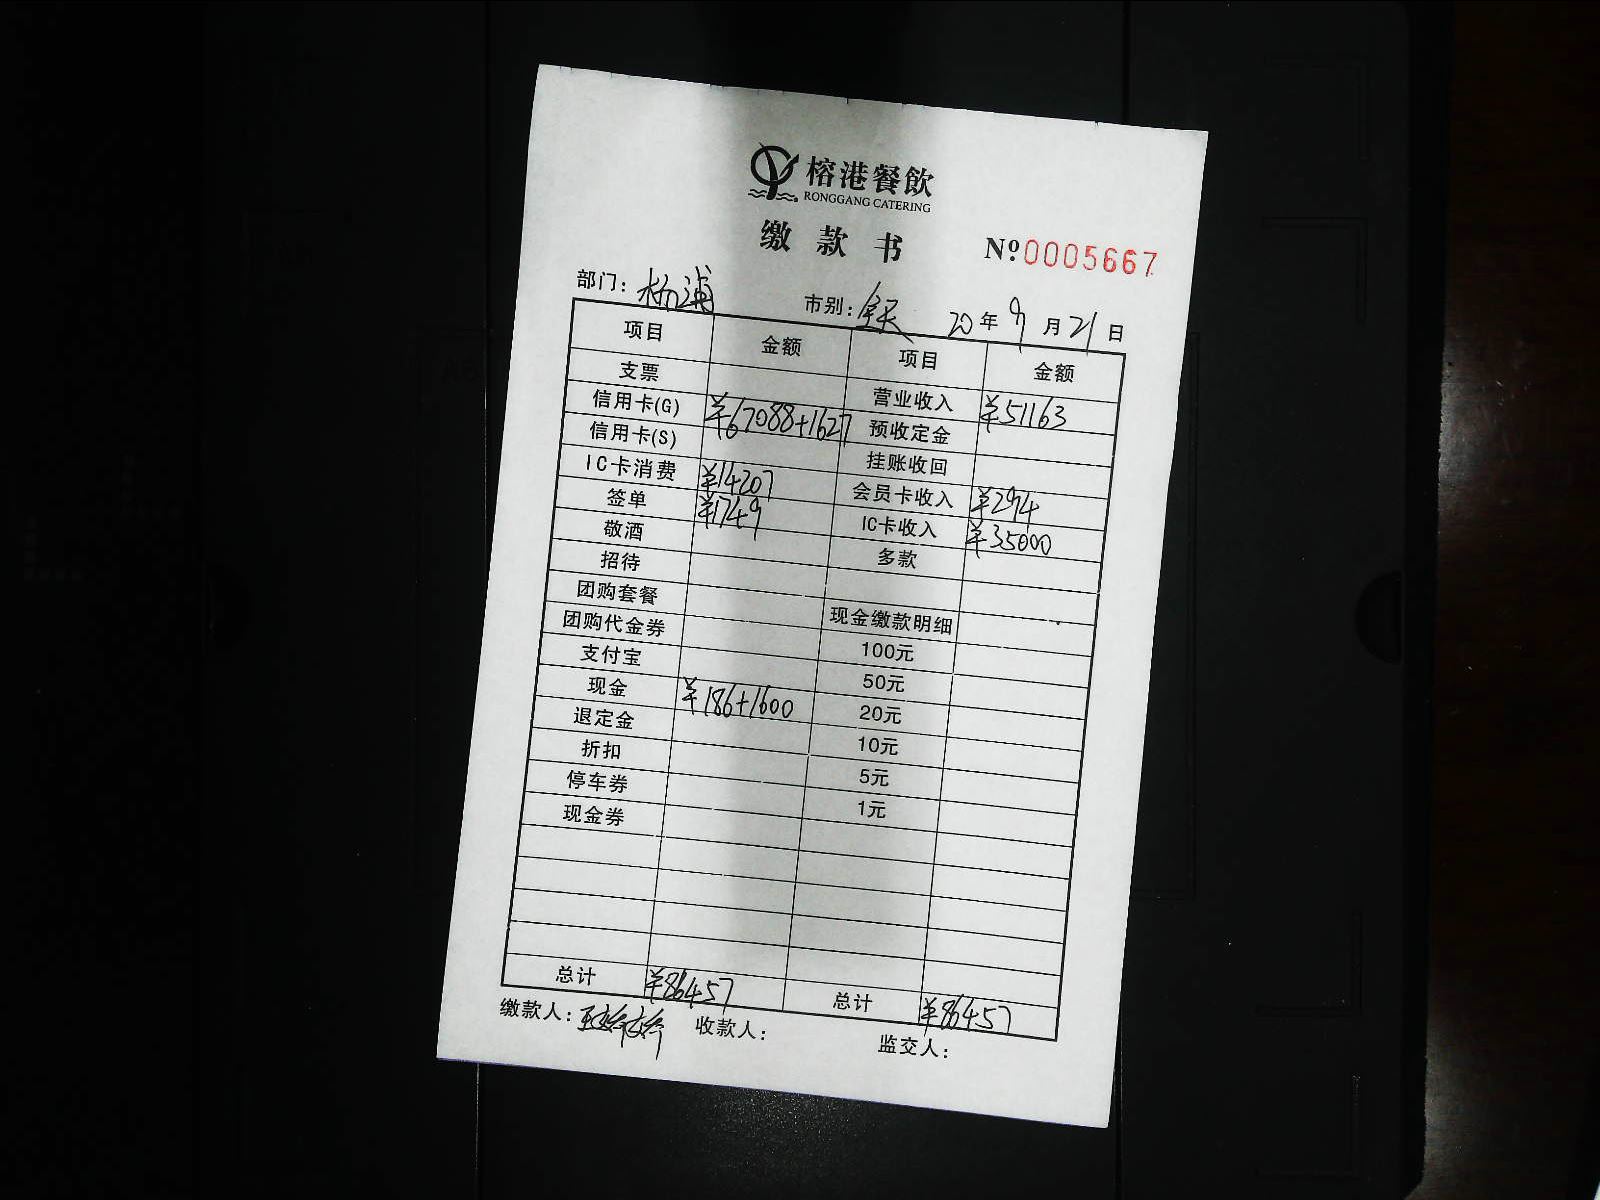 榕港餐飲
RONGGANG CATERING
缴款书 Nº0005667
部门：杨浦 市别：全天 20年9月21日
项目 金额 项目 金额
支票 营业收入 ¥51163
信用卡(G) ¥67088+1627 预收定金
信用卡(S) 挂账收回
IC卡消费 ¥14207 会员卡收入 ¥294
签单 ¥1749 IC卡收入 ¥35000
敬酒 多款
招待
团购套餐 现金缴款明细
团购代金券 100元
支付宝 50元
现金 ¥186+1600 20元
退定金 10元
折扣 5元
停车券 1元
现金券
总计 ¥86457 总计 ¥86457
缴款人： 收款人： 监交人：